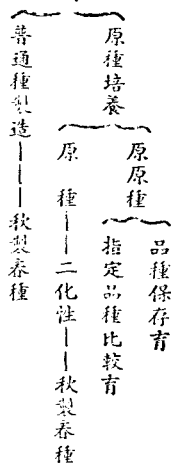 原種培養
原原種
品種保存育
指定品種比較育
原種──二化性──秋製春種
普通種製造───秋製春種